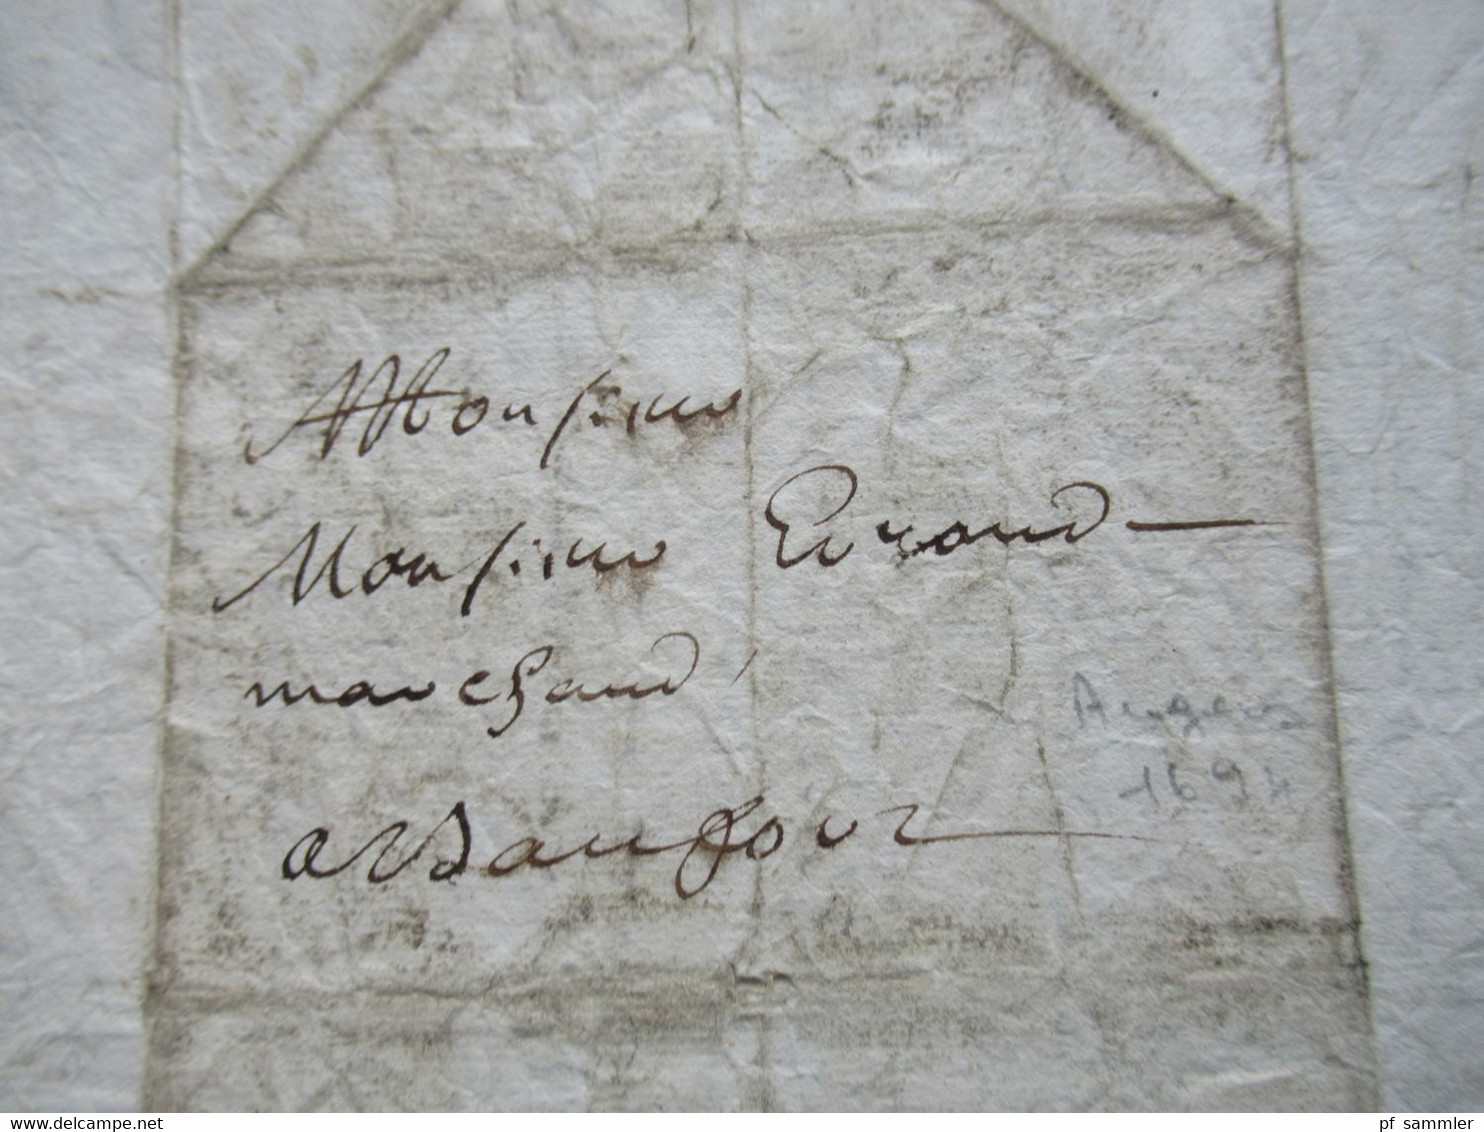 A Monsieur
Monsieur Evrond
marchand
a
Angers
1694
www.delcampe.net
pf_sammler